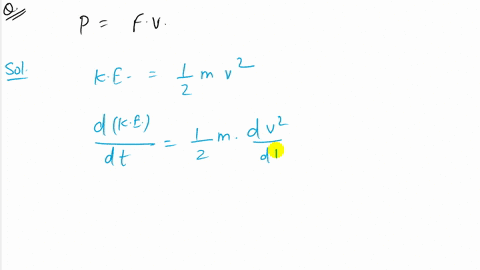 Q. P = F.V.
Sol. K.E. = 1/2 m v²
d(K.E.)/dt = 1/2 m. dv²/d